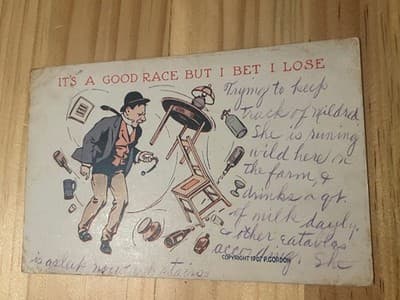 IT'S A GOOD RACE BUT I BET I LOSE
Trying to keep
track of mildred
She is runing
wild here on
the farm, &
drinks a qt.
of milk dayly,
& other eatables
accordig. She
COPYRIGHT 1907 P. GORDON
is asleep now upstairs